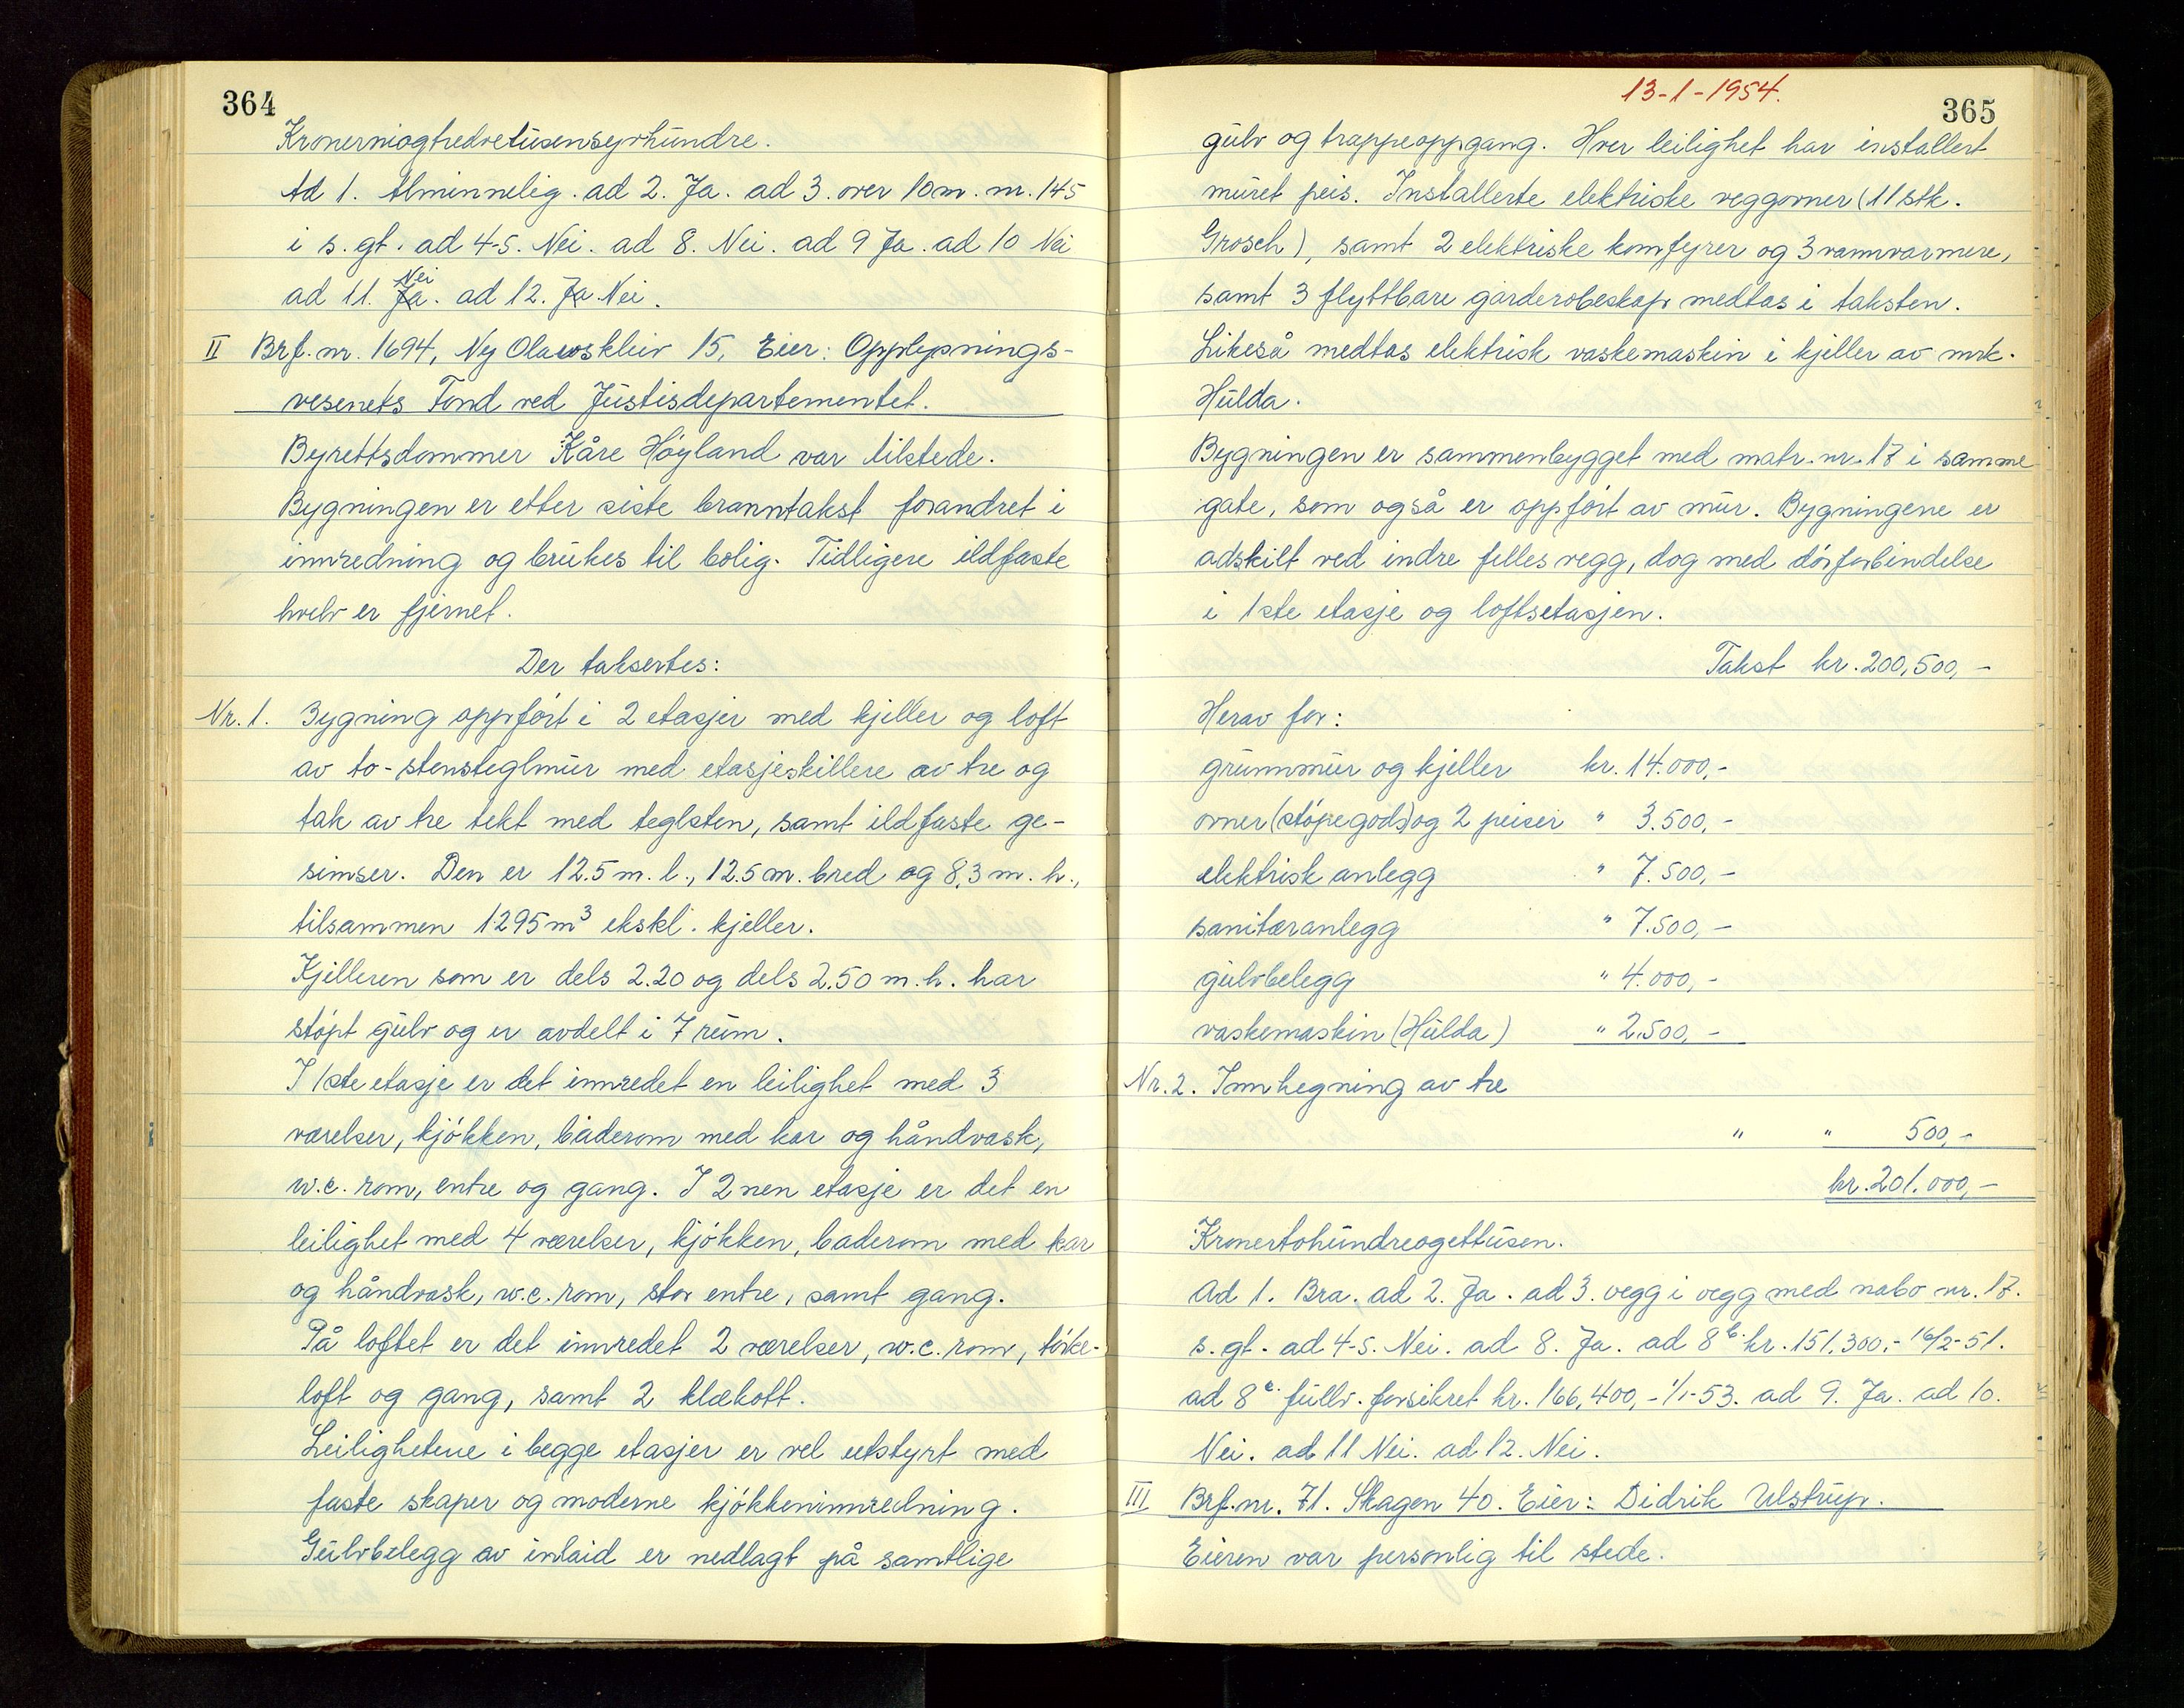 364
Kronerniogtredvetusensyvhundre.
Ad 1. Alminnelig. ad 2. Ja. ad 3. over 10 m. nr. 145
i s. gt. ad 4-5. Nei. ad 8. Nei. ad 9 Ja. ad 10 Nei
ad 11. Ja Nei. ad 12. Ja Nei.
II Brf. nr. 1694, Ny Olavskleiv 15, Eier: Opplysnings-
vesenets Fond ved Justisdepartementet.
Byrettsdommer Kåre Høyland var tilstede.
Bygningen er etter siste branntakst forandret i
innredning og brukes til bolig. Tidligere ildfaste
hvelv er fjernet.
Der taksertes:
Nr. 1. Bygning oppført i 2 etasjer med kjeller og loft
av to-stensteglmur med etasjeskillere av tre og
tak av tre tekt med teglsten, samt ildfaste ge-
simser. Den er 12.5 m. l., 12.5 m. bred og 8,3 m. h.,
tilsammen 1295 m³ ekskl. kjeller.
Kjelleren som er dels 2.20 og dels 2.50 m. h. har
støpt gulv og er avdelt i 7 rum.
I 1ste etasje er det innredet en leilighet med 3
værelser, kjøkken, baderom med kar og håndvask,
w.c. rom, entre og gang. I 2nen etasje er det en
leilighet med 4 værelser, kjøkken, baderom med kar
og håndvask, w.c. rom, stor entre, samt gang.
På loftet er det innredet 2 værelser, w.c. rom, tørke-
loft og gang, samt 2 klækott.
Leilighetene i begge etasjer er vel utstyrt med
faste skaper og moderne kjøkkeninnredning.
Gulvbelegg av inlaid er nedlagt på samtlige
13-1-1954.
365
gulv og trappeoppgang. Hver leilighet har installert
muret peis. Installerte elektriske veggovner (11 stk.
Grosch), samt 2 elektriske komfyrer og 3 vannvarmere,
samt 3 flyttbare garderobeskap medtas i taksten.
Likeså medtas elektrisk vaskemaskin i kjeller av mrk.
Hulda.
Bygningen er sammenbygget med matr. nr. 17 i samme
gate, som også er oppført av mur. Bygningene er
adskilt ved indre felles vegg, dog med dørforbindelse
i 1ste etasje og loftsetasjen.
Takst kr. 200,500,-
Herav for:
grunnmur og kjeller kr. 14.000,-
ovner (støpegods) og 2 peiser " 3.500,-
elektrisk anlegg " 7.500,-
sanitæranlegg " 7.500,-
gulvbelegg " 4.000,-
vaskemaskin (Hulda) " 2.500,-
Nr. 2. Innhegning av tre
" " 500,-
kr. 201.000,-
Kronertohundreogettusen.
Ad 1. Bra. ad 2. Ja. ad 3. vegg i vegg med nabo nr. 17.
s. gt. ad 4-5. Nei. ad 8. Ja. ad 8 b. kr. 151.300,- 16/2-51.
ad 8 c. fullv. forsikret kr. 166,400,- 1/1-53. ad 9. Ja. ad 10.
Nei. ad 11 Nei. ad 12. Nei.
III Brf. nr. 71. Skagen 40. Eier: Didrik Ulstrup.
Eieren var personlig til stede.